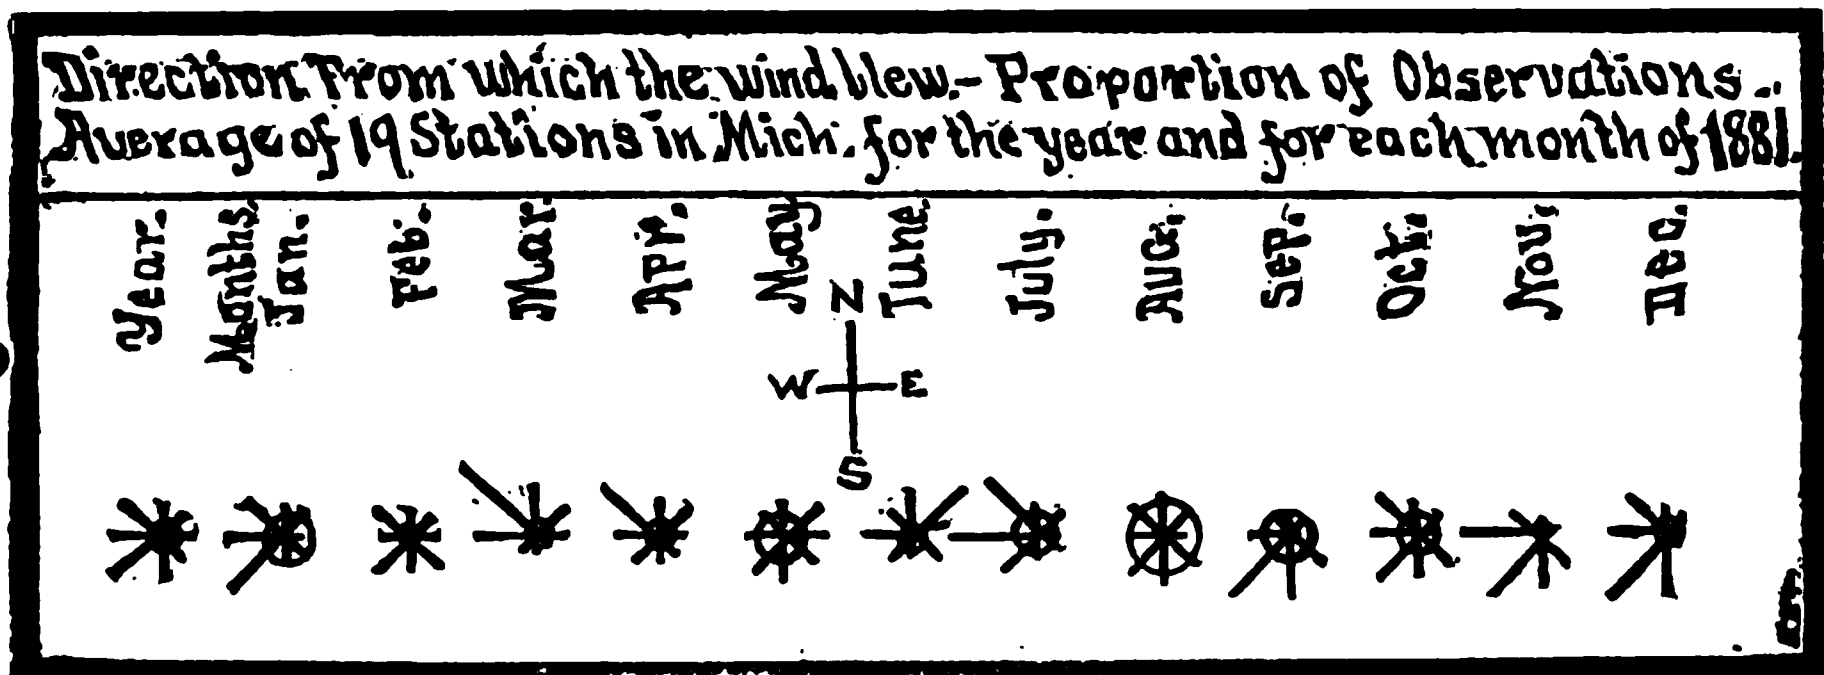 Direction From which the wind blew.- Proportion of Observations -.
Average of 19 Stations in Mich. for the year and for each month of 1881.
Year.
Months.
Jan.
Feb.
Mar.
Apr.
May
June
July.
Aug.
Sep.
Oct.
Nov.
Dec.
N
W E
S